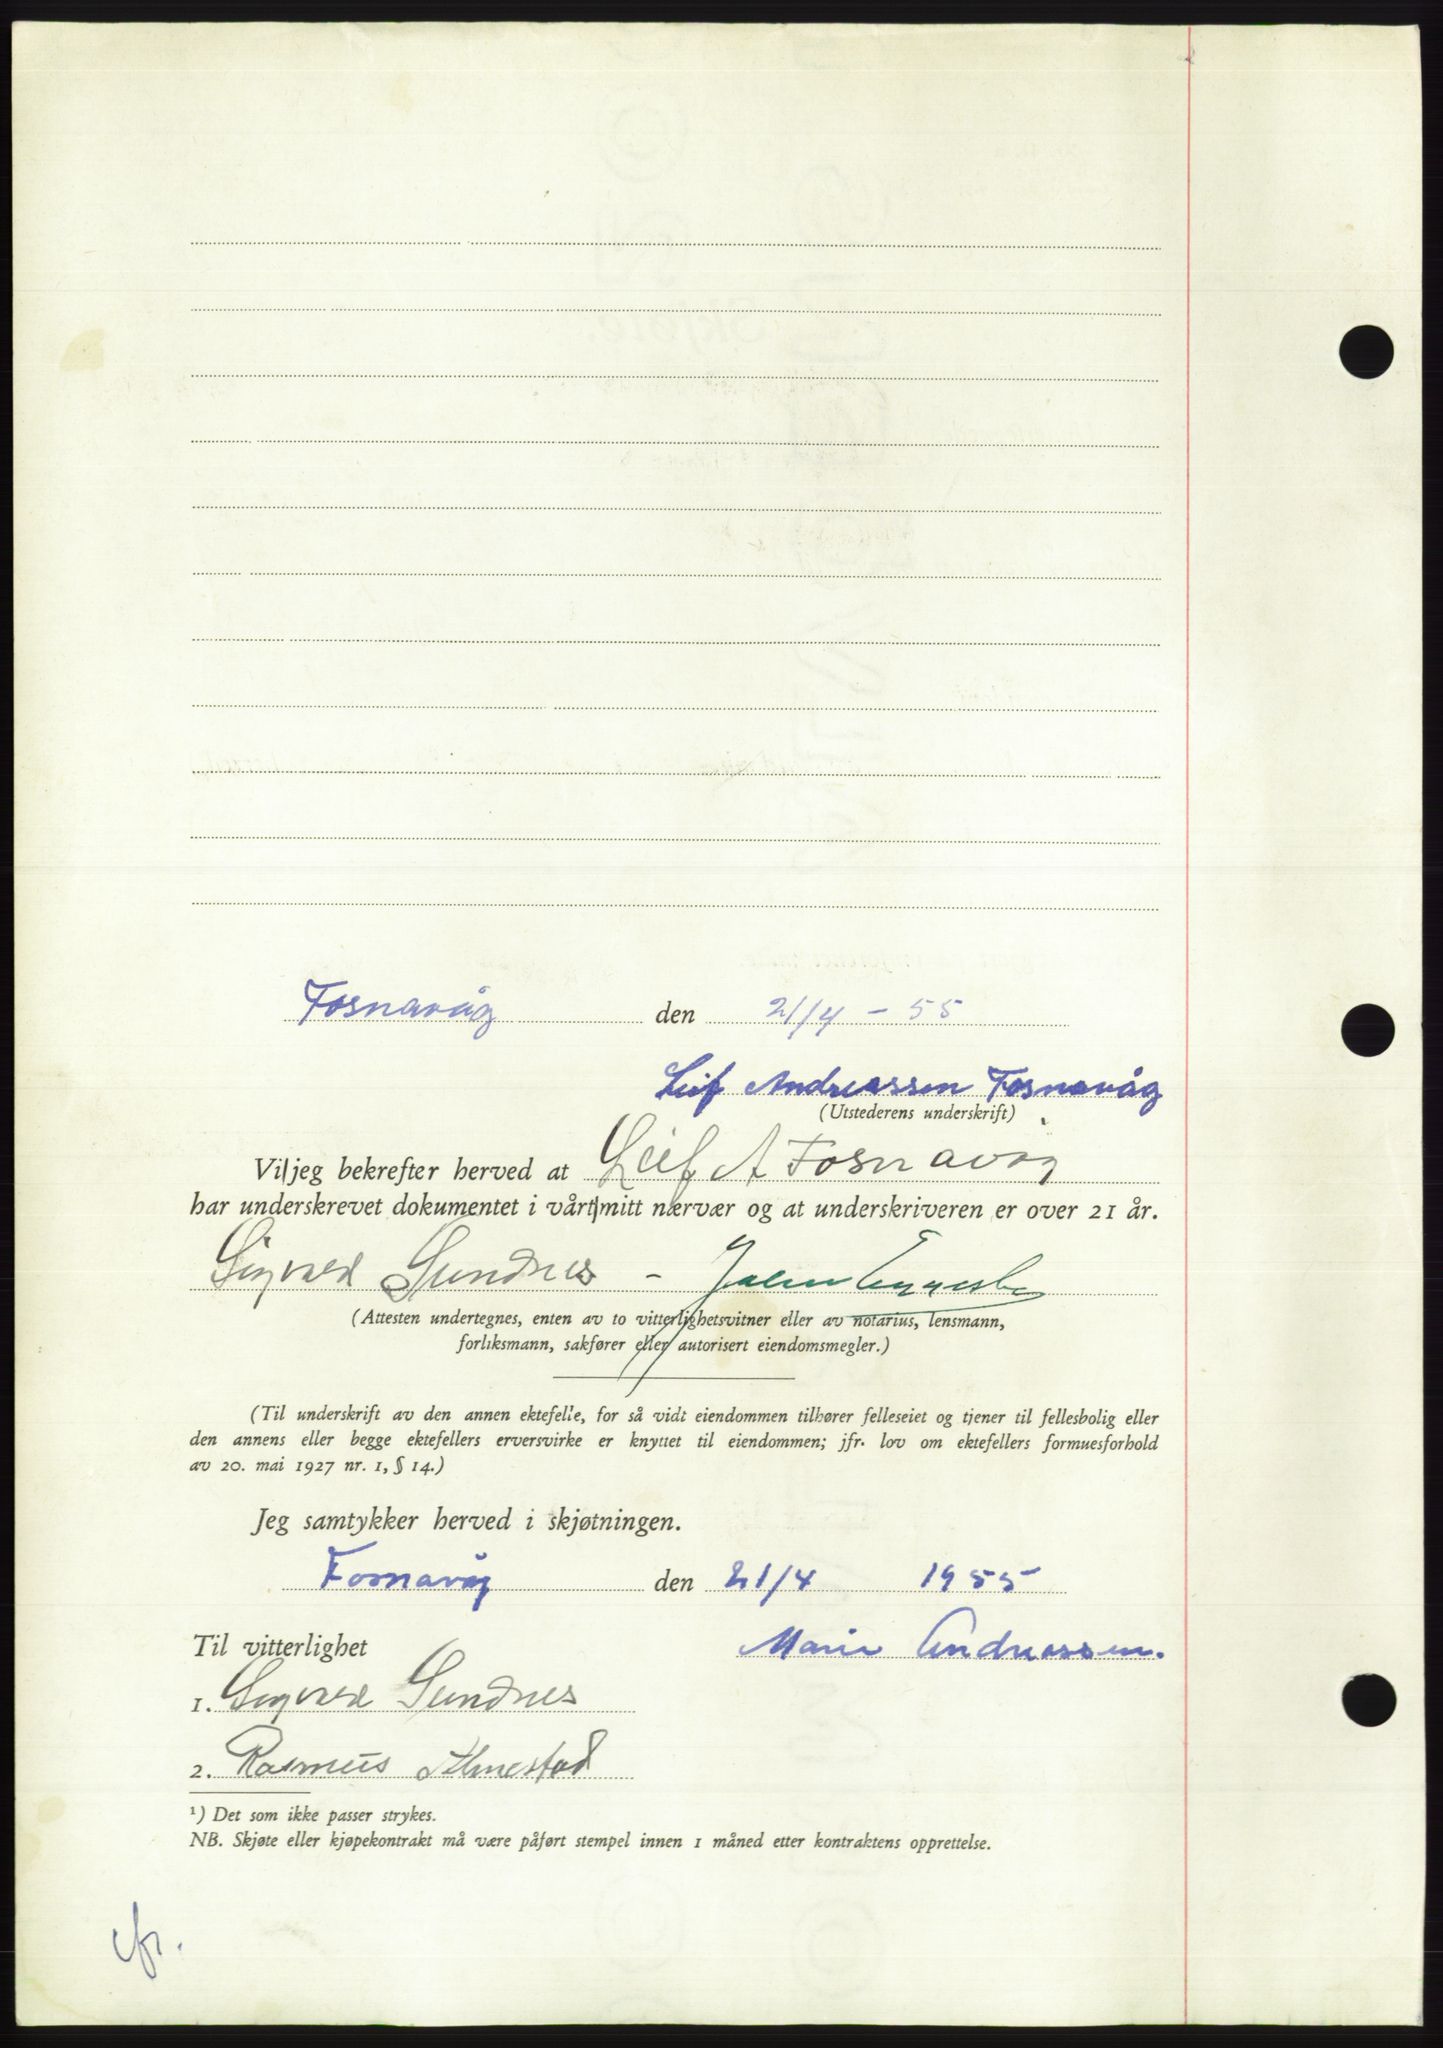 Fosnavåg den 21/4 - 55
Leif Andreassen Fosnavåg
(Utstederens underskrift)
Vi/jeg bekrefter herved at Leif A Fosnavåg
har underskrevet dokumentet i vårt/mitt nærvær og at underskriveren er over 21 år.
Sigvald Sundnes -
(Attesten undertegnes, enten av to vitterlighetsvitner eller av notarius, lensmann,
forliksmann, sakfører eller autorisert eiendomsmegler.)
(Til underskrift av den annen ektefelle, for så vidt eiendommen tilhører felleseiet og tjener til fellesbolig eller
den annens eller begge ektefellers erversvirke er knyttet til eiendommen; jfr. lov om ektefellers formuesforhold
av 20. mai 1927 nr. 1, § 14.)
Jeg samtykker herved i skjøtningen.
Fosnavåg den 21/4 1955
Til vitterlighet Marie Andreassen.
1. Sigvald Sundnes
2. Rasmus Almestad
¹) Det som ikke passer strykes.
NB. Skjøte eller kjøpekontrakt må være påført stempel innen 1 måned etter kontraktens opprettelse.